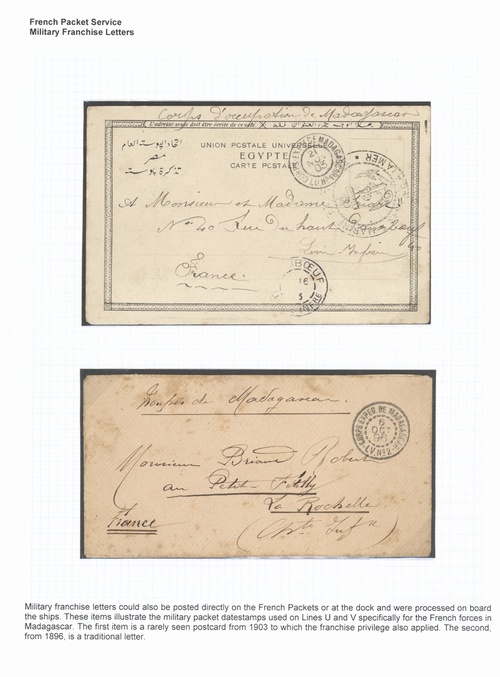 French Packet Service
Military Franchise Letters
Corps d'occupation de Madagascar
L'adresse seule doit être écrite de ce côté
اتحاد البوستة العام
مصر
تذكرة بوستة
UNION POSTALE UNIVERSELLE
EGYPTE
CARTE POSTALE
CORPS EXPED. DE MADAGASCAR
A Monsieur et Madame
No 40 Rue du haut
France.
Troupes de Madagascar.
CORPS EXPED. DE MADAGASCAR
6
OCT
96
L.V. No 2
Monsieur Briand Robert
au Petit-
La Rochelle
France
Military franchise letters could also be posted directly on the French Packets or at the dock and were processed on board
the ships. These items illustrate the military packet datestamps used on Lines U and V specifically for the French forces in
Madagascar. The first item is a rarely seen postcard from 1903 to which the franchise privilege also applied. The second,
from 1896, is a traditional letter.